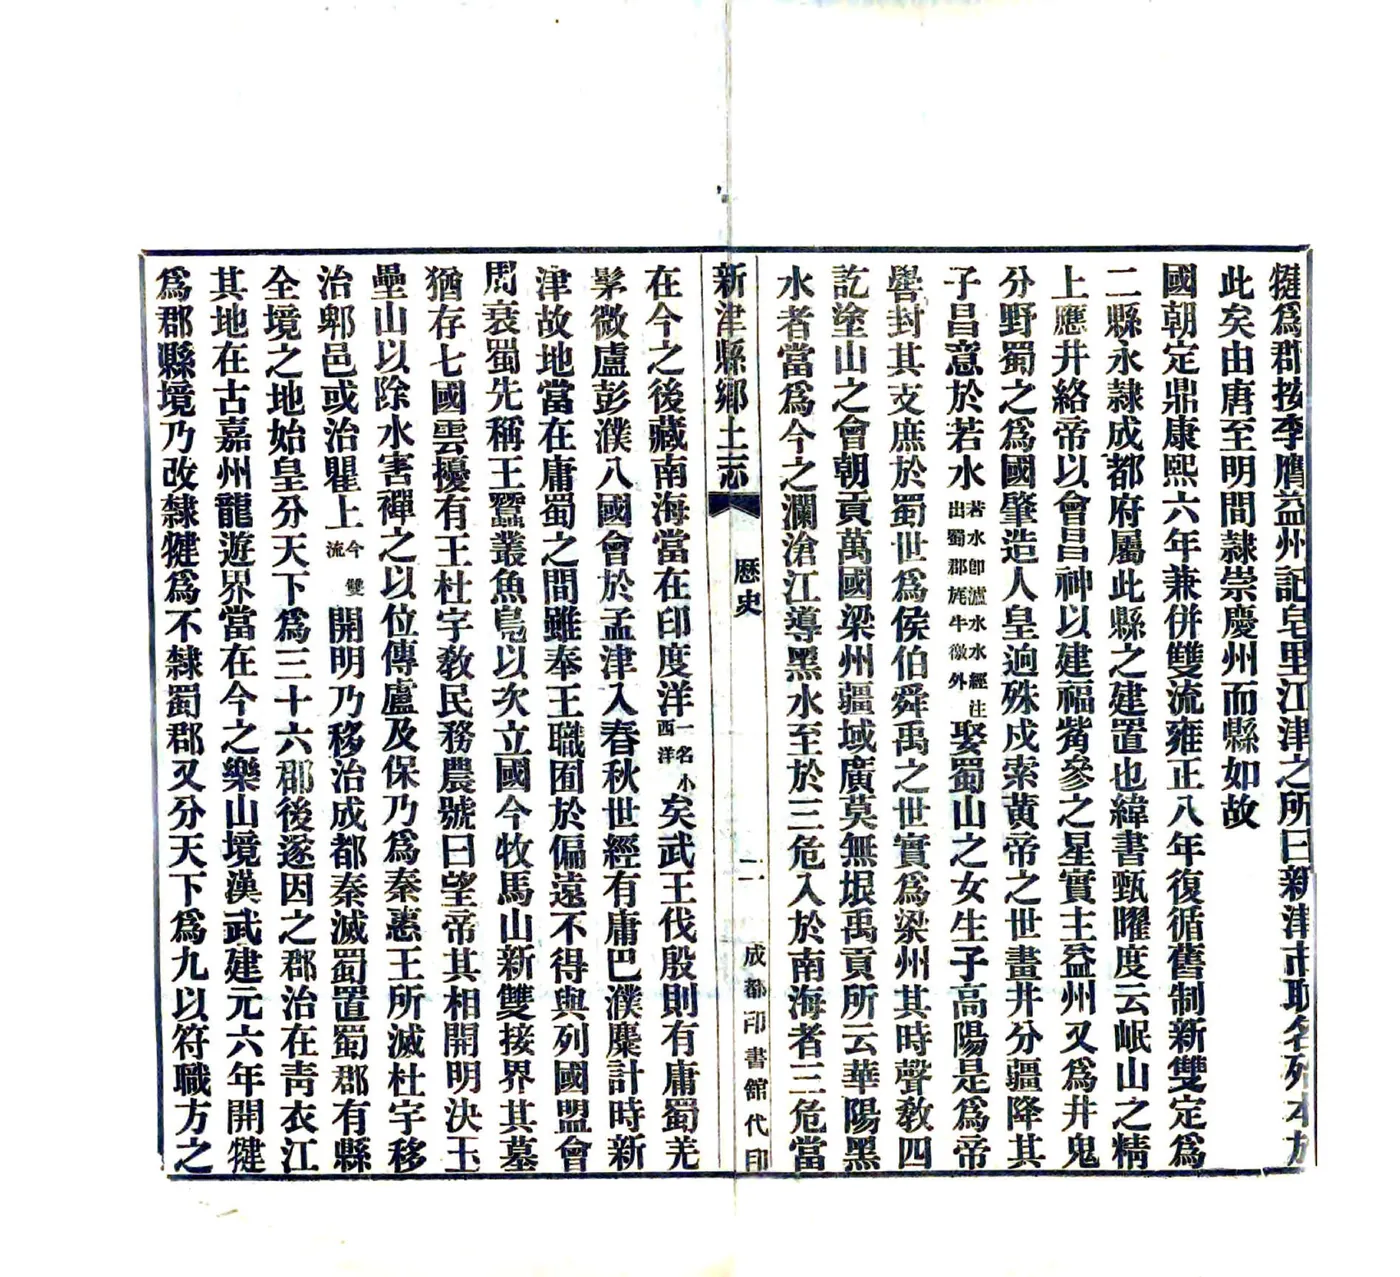 犍爲郡按李膺益州記皂里江津之所曰新津市取名殆本於
此矣由唐至明間隸崇慶州而縣如故
國朝定鼎康熙六年兼併雙流雍正八年復循舊制新雙定爲
二縣永隸成都府屬此縣之建置也緯書甄曜度云岷山之精
上應井絡帝以會昌神以建福觜參之星實主益州又爲井鬼
分野蜀之爲國肇造人皇逈殊戍索黃帝之世畫井分疆降其
子昌意於若水若水卽瀘水水經注出蜀郡旄牛徼外娶蜀山之女生子高陽是爲帝
嚳封其支庶於蜀世爲侯伯舜禹之世實爲梁州其時聲敎四
訖塗山之會朝貢萬國梁州疆域廣莫無垠禹貢所云華陽黑
水者當爲今之瀾滄江導黑水至於三危入於南海者三危當
新津縣鄉土志 歷史 二 成都印書館代印
在今之後藏南海當在印度洋一名小西洋矣武王伐殷則有庸蜀羌
髳微盧彭濮八國會於孟津入春秋世經有庸巴濮麇計時新
津故地當在庸蜀之間雖奉王職囿於偏遠不得與列國盟會
周衰蜀先稱王蠶叢魚鳧以次立國今牧馬山新雙接界其墓
猶存七國雲擾有王杜宇敎民務農號曰望帝其相開明決玉
壘山以除水害禪之以位傳盧及保乃爲秦惠王所滅杜宇移
治郫邑或治瞿上今雙流開明乃移治成都秦滅蜀置蜀郡有縣
全境之地始皇分天下爲三十六郡後遂因之郡治在靑衣江
其地在古嘉州龍遊界當在今之樂山境漢武建元六年開犍
爲郡縣境乃改隸犍爲不隸蜀郡又分天下爲九以符職方之